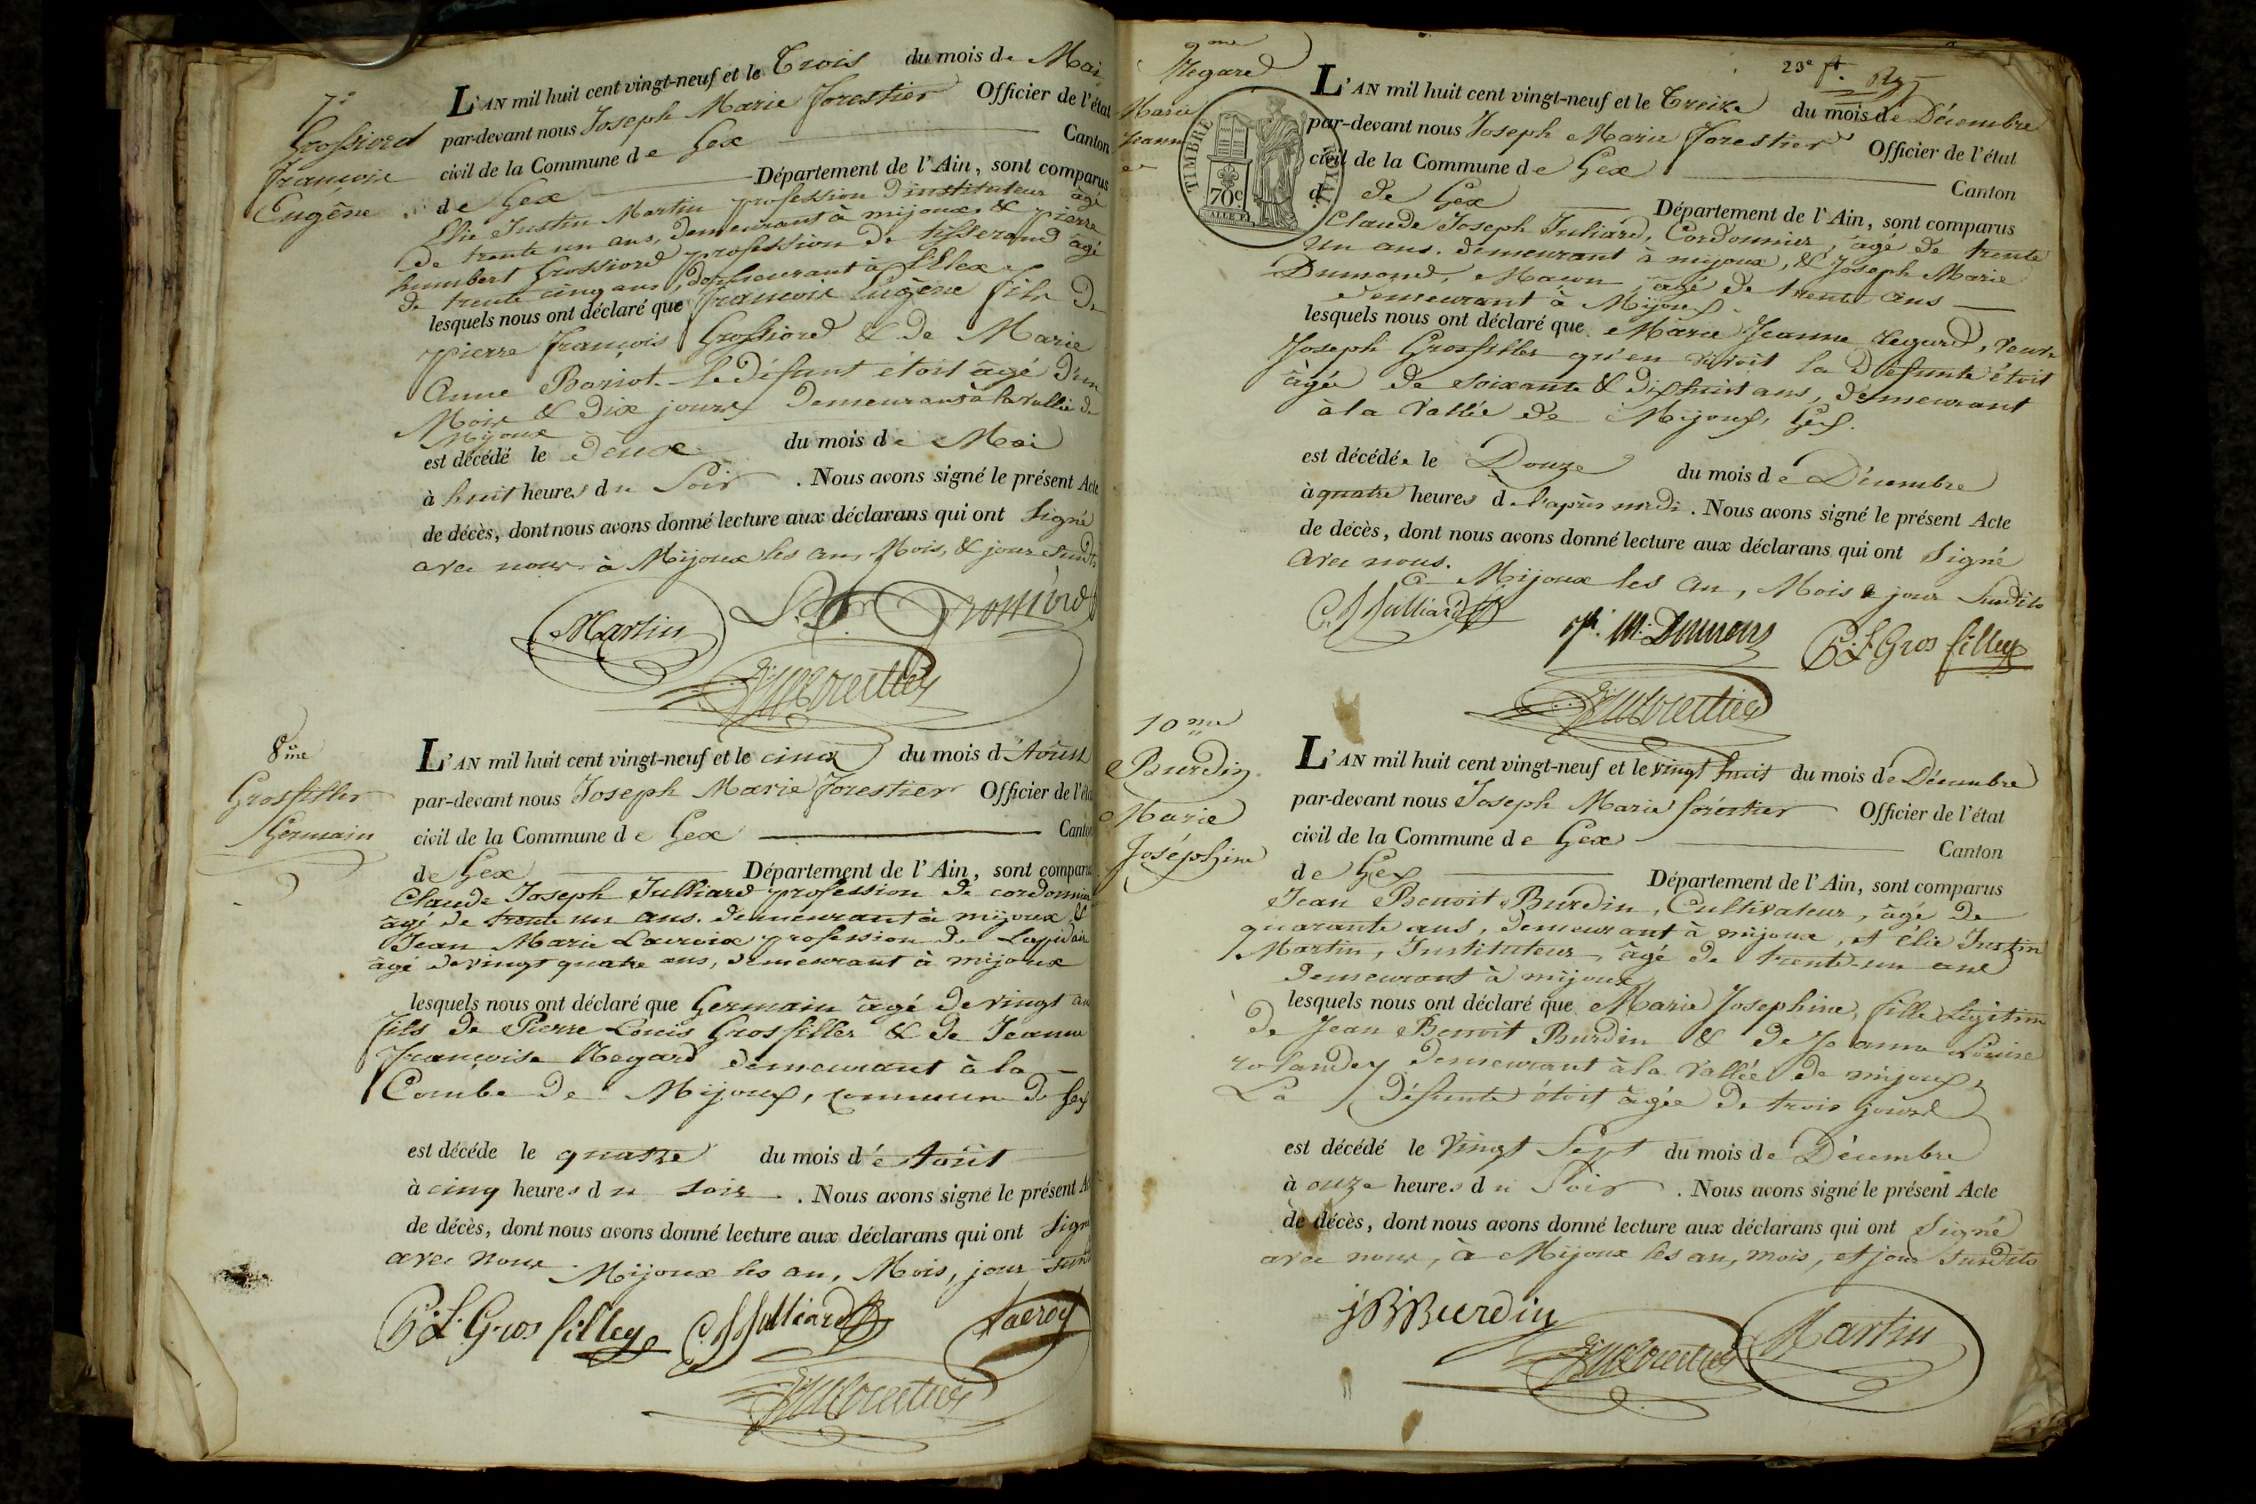 7e
Grossiord
François
Eugène
L'AN mil huit cent vingt-neuf et le Trois du mois de Mai
par-devant nous Joseph Marie forestier Officier de l'état
civil de la Commune de Gex Canton
de Gex Département de l'Ain, sont comparus
Elie Justin Martin profession d'instituteur âgé
de trente un ans, demeurant à mijoux & Pierre
humbert Grossiord profession de tisserand âgé
de trente cinq ans, demeurant à Lélex
lesquels nous ont déclaré que françois Eugène fils de
pierre françois Grossiord & de Marie
Anne Boriot. le défunt étoit âgé d'un
Mois & dix jours demeurant à la vallée de
Mijoux
est décédé le deux du mois de Mai
à huit heures du Soir . Nous avons signé le présent Acte
de décès, dont nous avons donné lecture aux déclarans qui ont Signé
avec nous à Mijoux les an, Mois, & jour Susdits
Martin
8me
Grosfiller
Germain
L'AN mil huit cent vingt-neuf et le cinq du mois d'Août
par-devant nous Joseph Marie forestier Officier de l'éta
civil de la Commune de Gex Canton
de Gex Département de l'Ain, sont comparu
Claude Joseph Julliard profession de cordonnier
âgé de trente un ans. demeurant à mijoux &
Jean Marie Lacroix profession de Lapidaire
âgé de vingt quatre ans, demeurant à mijoux
lesquels nous ont déclaré que Germain âgé de vingt an
fils de Pierre Louis Grosfiller & de Jeanne
françoise Regard demeurant à la
Combe de Mijoux, commune de Gex
est décéde le quatre du mois de Août
à cinq heures du soir . Nous avons signé le présent A
de décès, dont nous avons donné lecture aux déclarans qui ont Signé
avec nous. Mijoux les an, Mois, jour susd
P.L. Gros filley C J Julliard Lacroix
9me
Regard
Marie
Jeanne
TIMBRE ROYAL
70c
23e ft.
L'AN mil huit cent vingt-neuf et le Treize du mois de Décembre
par-devant nous Joseph Marie forestier Officier de l'état
civil de la Commune de Gex Canton
d de Gex Département de l'Ain, sont comparus
Claude Joseph Juliard, Cordonnier, âgé de trente
un ans. demeurant à mijoux, & Joseph Marie
Dumond, Maçon, âgé de trente ans
demeurant à Mijoux
lesquels nous ont déclaré que Marie Jeanne Regard, veuve
Joseph Grosfiller qu'en vivoit la Défunte étoit
âgée de soixante & dix huit ans, demeurant
à la Vallée de Mijoux, Gex.
est décédée le Douze du mois de Décembre
à quatre heures de l'après midi . Nous avons signé le présent Acte
de décès, dont nous avons donné lecture aux déclarans qui ont Signé
avec nous.
à Mijoux les an, Mois & jour Susdits
C J Julliard
P.L. Gros filley
10me
Burdin
Marie
Joséphine
L'AN mil huit cent vingt-neuf et le vingt huit du mois de Décembre
par-devant nous Joseph Marie forestier Officier de l'état
civil de la Commune de Gex Canton
de Gex Département de l'Ain, sont comparus
Jean Benoit Burdin, Cultivateur, âgé de
quarante ans, demeurant à mijoux, et élie Justin
Martin, Instituteur, âgé de trente-un ans
demeurant à mijoux
lesquels nous ont déclaré que Marie Josephine, fille Légitime
de Jean Benoit Burdin & de Jeanne Louise
rolandez demeurant à la Vallée de mijoux,
La Défunte étoit âgée de trois jours
est décédé le Vingt Sept du mois de Décembre
à onze heures du Soir . Nous avons signé le présent Acte
de décès, dont nous avons donné lecture aux déclarans qui ont Signé
avec nous, à Mijoux les an, mois, et jour Susdits
j B Burdin
Martin